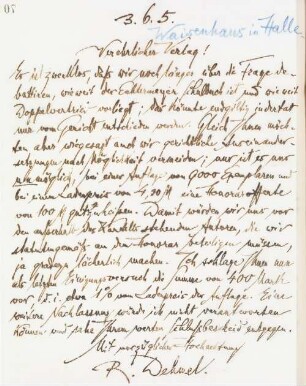 70
3. 6. 5.
Waisenhaus in Halle.
Verehrlicher Verlag!
Es ist zwecklos, daß wir noch länger über die Frage de-
battieren, wieweit der Echtermeyer und wie weit
Doppelvertrieb vorliegt; das könnte endgültig jedenfalls
nur vom Gericht entschieden werden. Gleich Ihnen möchten
aber wir gerichtliche Auseinander-
setzungen nach Möglichkeit vermeiden; nur ist es mir
nicht möglich, bei einer Auflage von 9000 Exemplaren und
bei einem Ladenpreis von eine Honorarofferte
von 100 M gutzuheißen. Damit würden wir uns vor
den außerhalb des Kartells stehenden Autoren, die wir
statutengemäß an den Honoraren beteiligen müssen,
ja geradezu lächerlich machen. Ich schlage Ihnen nun
als letzten Einigungsversuch die Summe von 400 Mark
vor, d. i. etwa 1% vom Ladenpreis der Auflage. Eine
weitere Nachlassung würde ich nicht verantworten
können und sehe Ihrem werten Schlußbescheid entgegen.
Mit vorzüglicher Hochachtung
R. Dehmel.